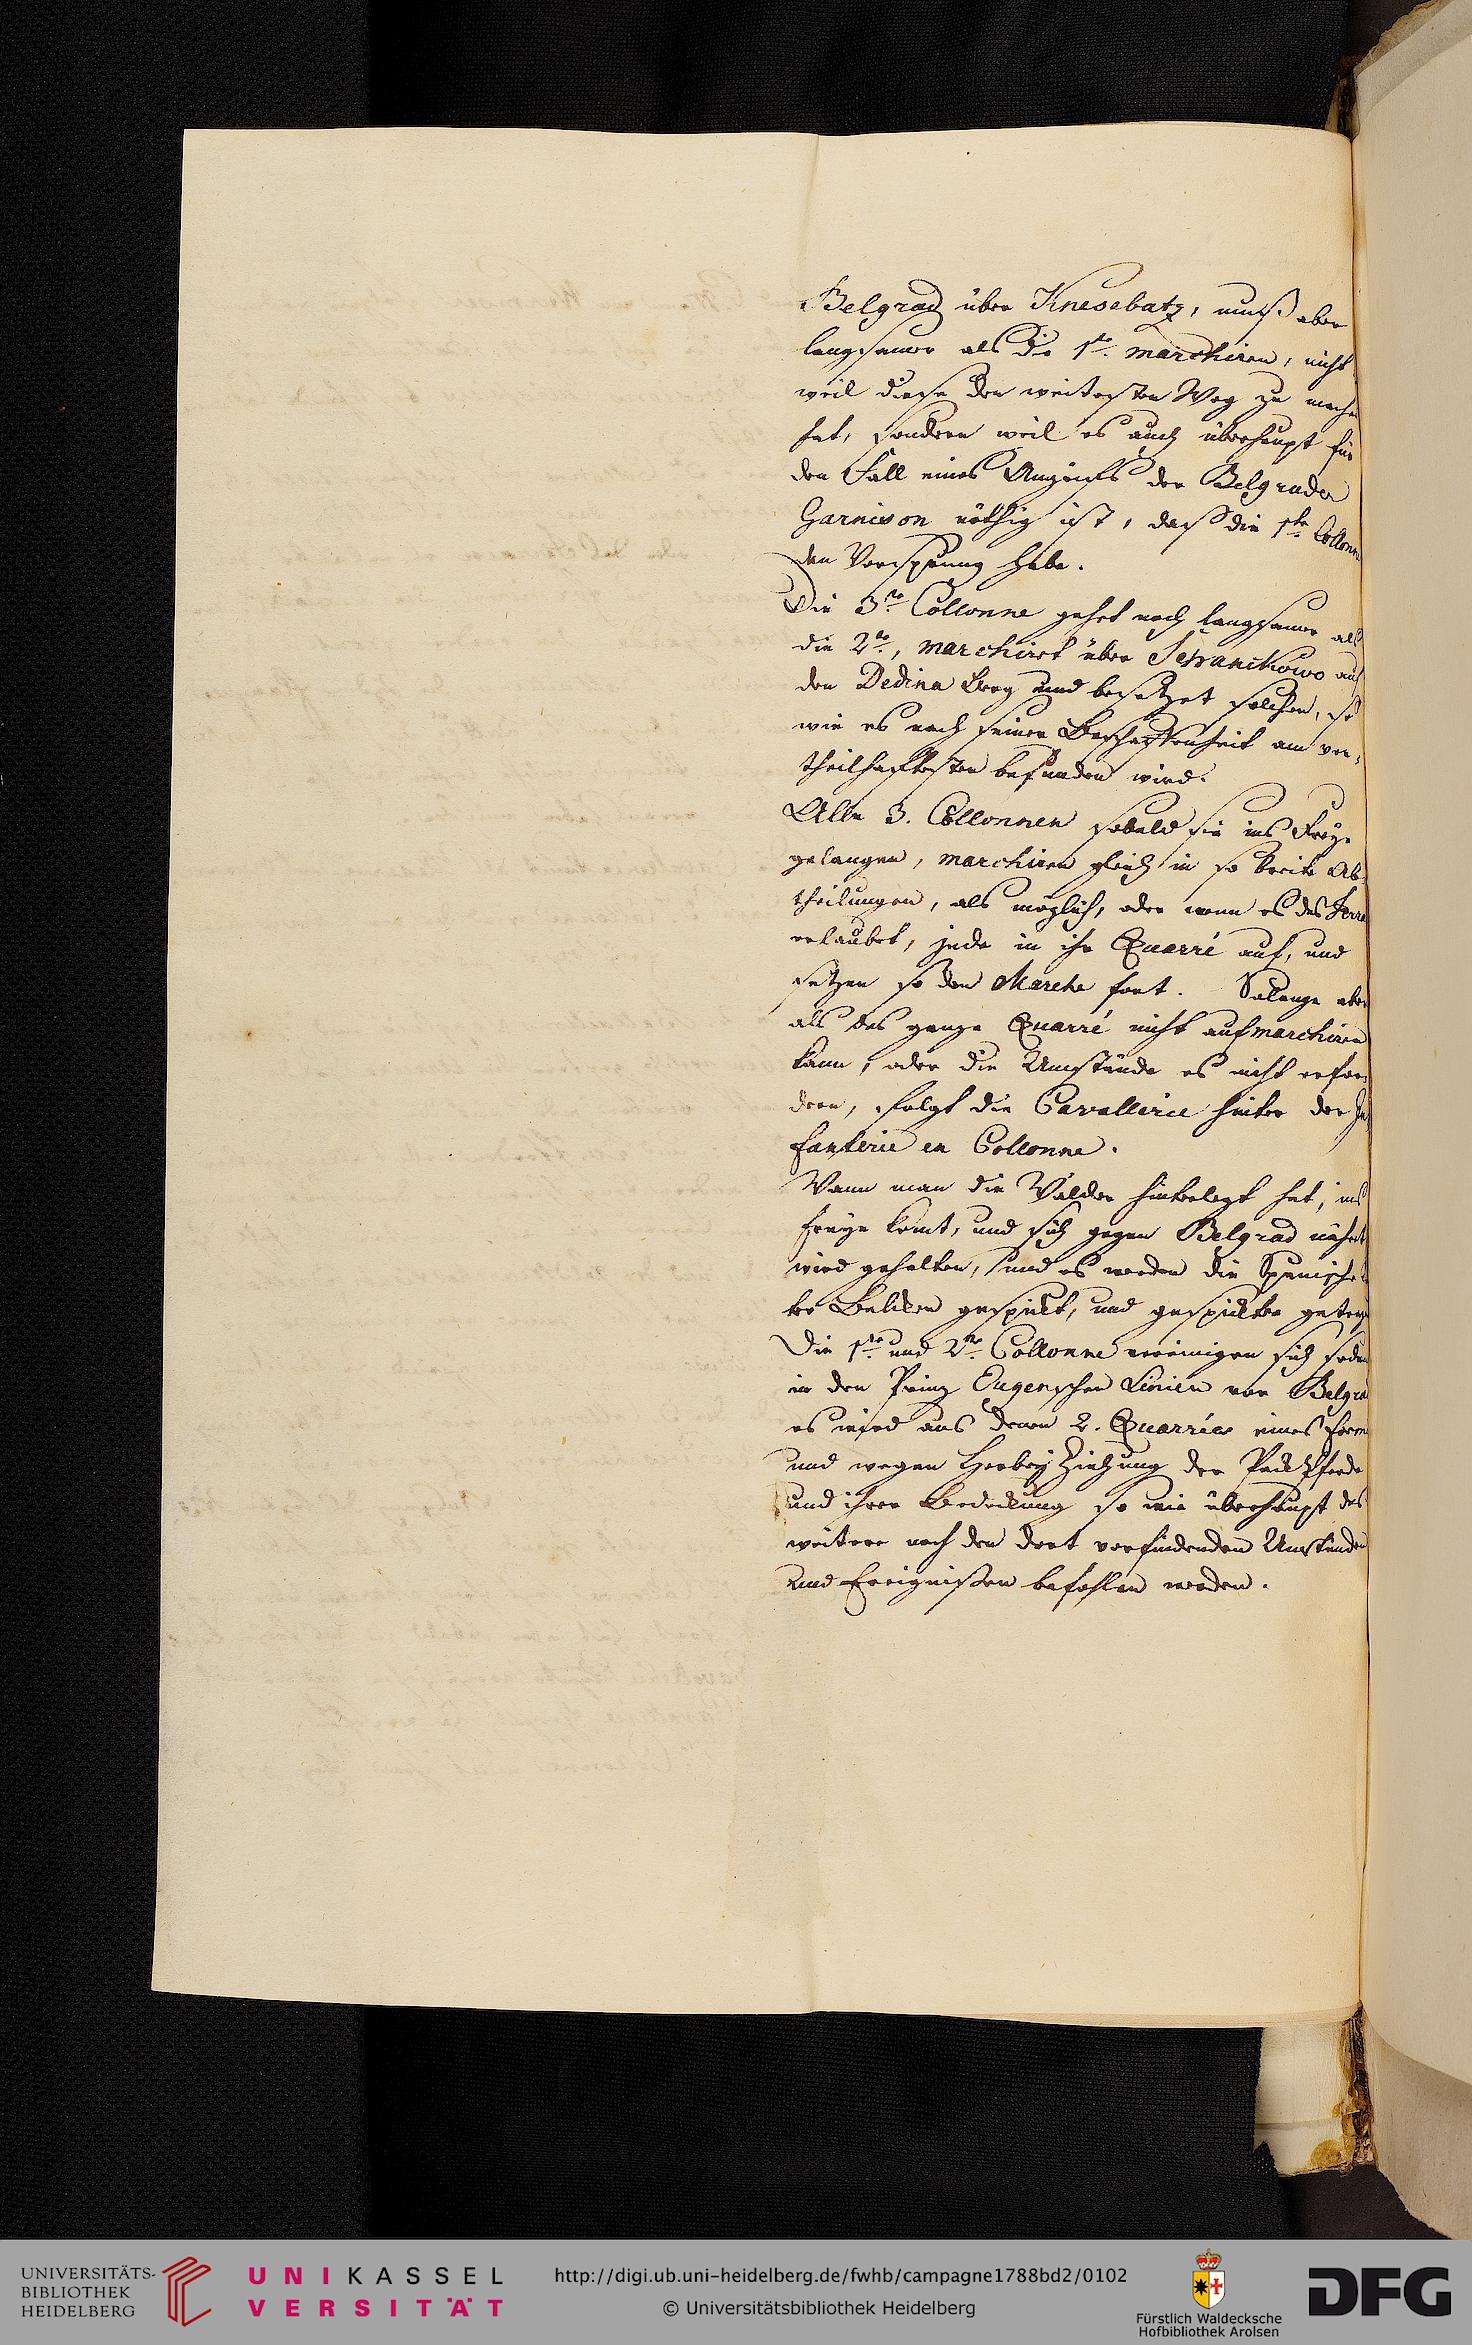 Belgrad über Knesebatz, muß aber
langsamer als die 1te. marchiren, nicht
weil diese den weitesten Weg zu machen
hat, sondern weil es auch überhaupt für
den Fall eines Angriefs der Belgrader
Garnison nöthig ist, daß die 1te. Collonne
den Vorsprung habe.
Die 3te. Collonne gehet noch langsamer als
die 2te., marchiret über auf
den Dedina Berg und besetzet solchen, so
wie es nach seiner Beschaffenheit am vor-
theilhaftesten befunden wird.
Alle 3. Collonnen sobald sie ins Freye
gelangen, marchiren gleich in so breite Ab-
theilungen, als möglich, oder wenn es das Terra
erlaubet, jede in ihr Quarré auf, und
setzen so den Marche fort. Solange aber
als das ganze Quarré nicht aufmarchiren
kann, oder die Umstände es nicht erfor-
dern, folgt die Cavallerie hinter der In
fanterie en Collonne.
Wann man die Wälder hinterlegt hat, ins
freye komt, und sich gegen Belgrad nähert
wird gehalten, und es werden die Spanische
ter Balken gespickt, und gespickter getrag
Die 1te. und 2te. Collonne vereinigen sich sodan
in den Prinz Eugenschen Linien vor Belgra
es wird aus denen 2. Quarrées eines form
und wegen Herbey Ziehung der Pack Pferde
und ihrer Bedeckung so wie überhaupt das
weitere nach den dort vorfindenden Umständen
und Ereignißen befohlen werden.
UNIVERSITÄTS-
BIBLIOTHEK
HEIDELBERG
UNIKASSEL
VERSITÄT
http://digi.ub.uni-heidelberg.de/fwhb/campagne1788bd2/0102
© Universitätsbibliothek Heidelberg
Fürstlich Waldecksche
Hofbibliothek Arolsen
DFG